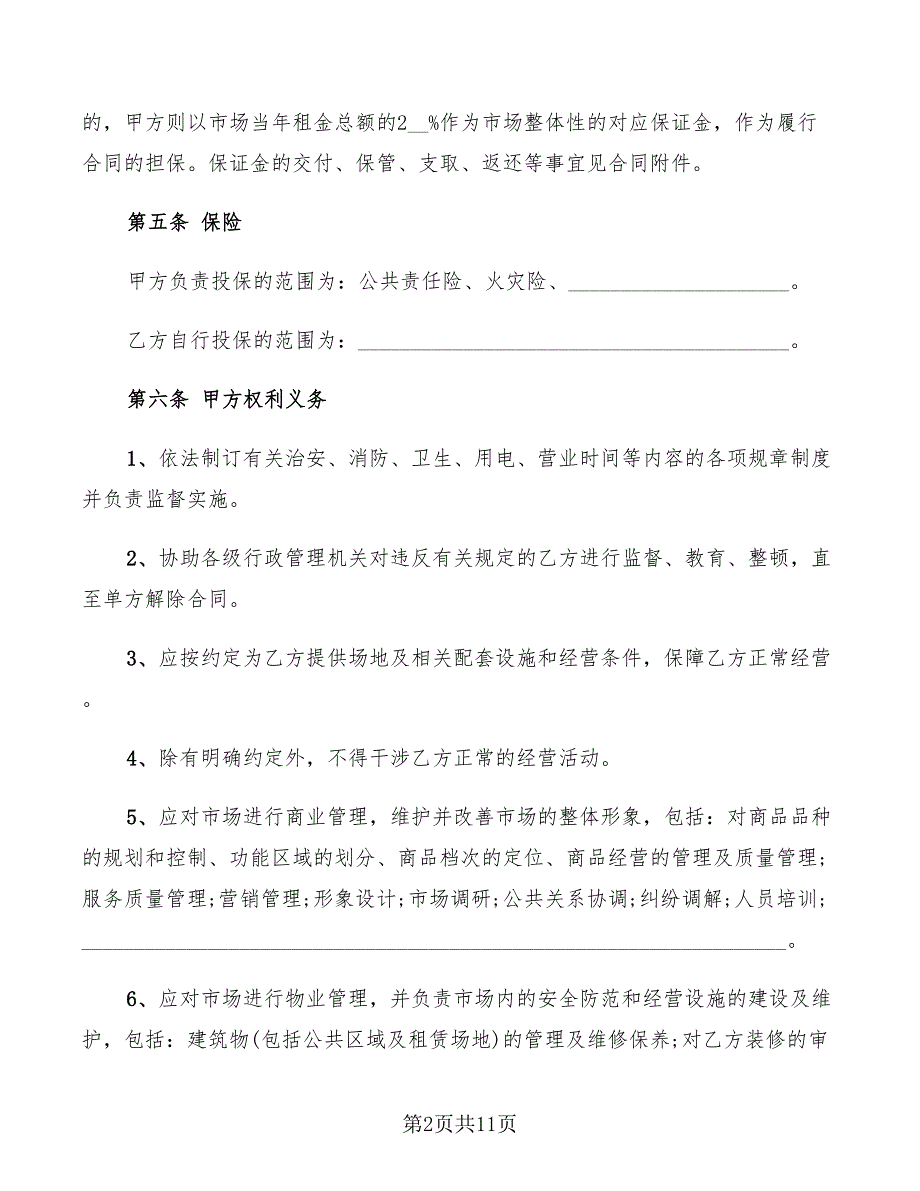 的，甲方则以市场当年租金总额的2__%作为市场整体性的对应保证金，作为履行
合同的担保。保证金的交付、保管、支取、返还等事宜见合同附件。
第五条 保险
甲方负责投保的范围为：公共责任险、火灾险、_____________________。
乙方自行投保的范围为：_________________________________________。
第六条 甲方权利义务
1、依法制订有关治安、消防、卫生、用电、营业时间等内容的各项规章制度
并负责监督实施。
2、协助各级行政管理机关对违反有关规定的乙方进行监督、教育、整顿，直
至单方解除合同。
3、应按约定为乙方提供场地及相关配套设施和经营条件，保障乙方正常经营
。
4、除有明确约定外，不得干涉乙方正常的经营活动。
5、应对市场进行商业管理，维护并改善市场的整体形象，包括：对商品品种
的规划和控制、功能区域的划分、商品档次的定位、商品经营的管理及质量管理;
服务质量管理;营销管理;形象设计;市场调研;公共关系协调;纠纷调解;人员培训;
___________________________________________________________________。
6、应对市场进行物业管理，并负责市场内的安全防范和经营设施的建设及维
护，包括：建筑物(包括公共区域及租赁场地)的管理及维修保养;对乙方装修的审
第2页共11页